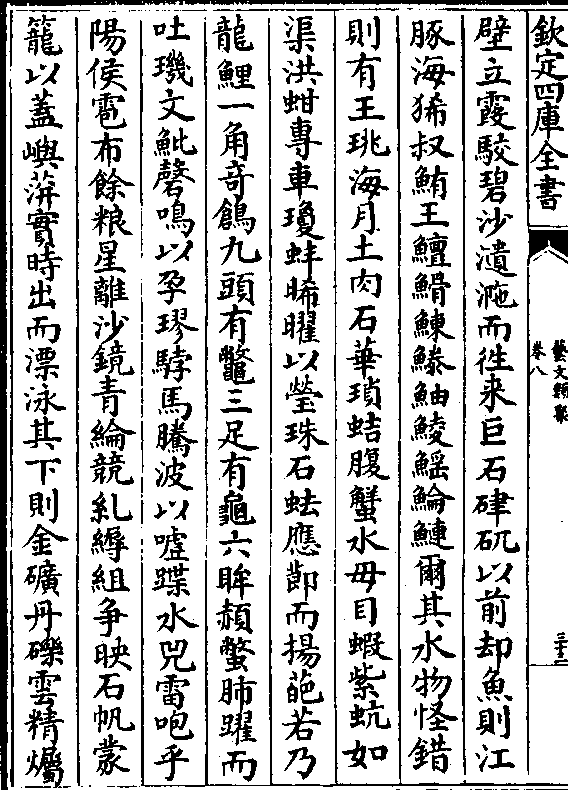 欽定四庫全書
壁立霞駮碧沙瀢㳿而徃来巨石硉矹以前却魚則江
豚海狶叔鮪王鱣䱻鰊䲍鮋鯪鰩鯩鰱爾其水物怪錯
則有王珧海月土肉石華瑣蛣腹蟹水母目蝦紫蚢如
渠洪蚶專車瓊蚌晞曜以瑩珠石應莭而揚葩若乃
龍鯉一角竒鶬九頭有鼈三足有龜六眸赬蟞肺躍而
吐璣文魮磬鳴以孕璆騂馬騰波以嘘蹀水兕雷咆乎
陽侯雹布餘粮星離沙鏡青綸競糺縟組争映石帆蒙
籠以蓋嶼蓱實時出而漂泳其下則金礦丹礫雲精爥
藝文類聚
卷八
三十二